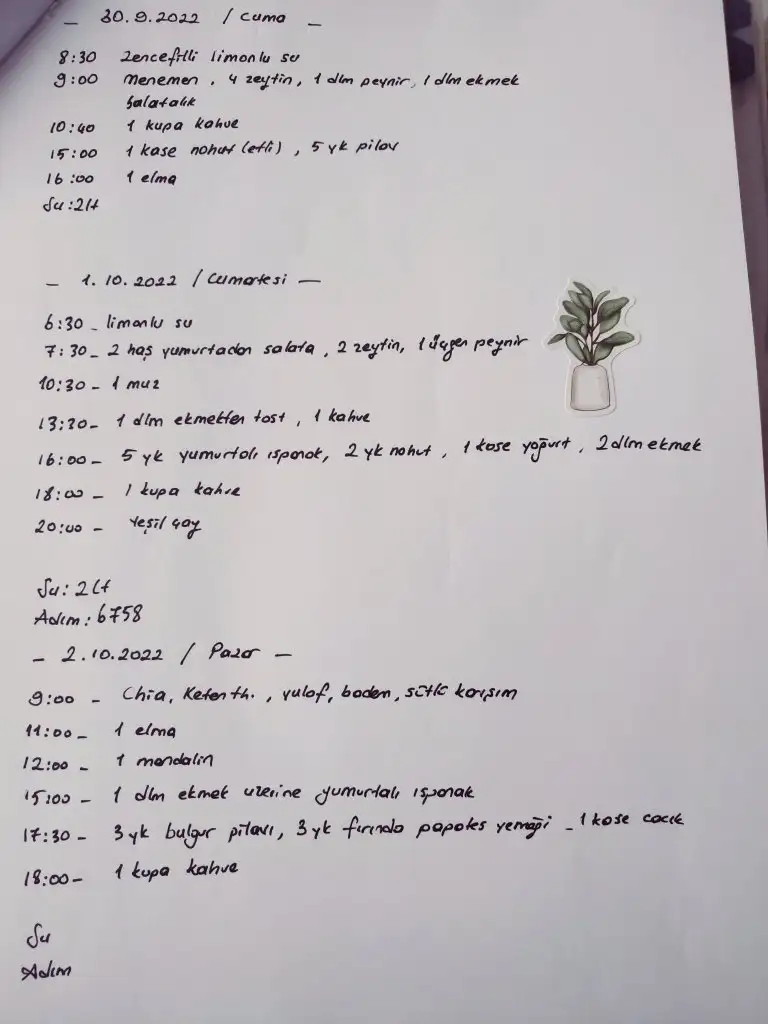 - 30.9.2022 / Cuma -
8:30 Zencefilli limonlu su
9:00 Menemen, 4 zeytin, 1 dlm peynir, 1 dlm ekmek
Salatalık
10:40 1 kupa kahve
15:00 1 kase nohut (etli), 5 yk pilav
16:00 1 elma
Su:2lt
- 1.10.2022 / Cumartesi -
6:30 - limonlu su
7:30 - 2 haş yumurtadan salata, 2 zeytin, 1 üçgen peynir
10:30 - 1 muz
13:30 - 1 dlm ekmekten tost, 1 kahve
16:00 - 5 yk yumurtalı ıspanak, 2 yk nohut, 1 kase yoğurt, 2 dlm ekmek
18:00 - 1 kupa kahve
20:00 - Yeşil çay
Su: 2 Lt
Adım: 6758
- 2.10.2022 / Pazar -
9:00 - Chia, Keten th., yulaf, badem, sütlü karışım
11:00 - 1 elma
12:00 - 1 mandalin
15:00 - 1 dlm ekmek üzerine yumurtalı ıspanak
17:30 - 3 yk bulgur pilavı, 3 yk fırında papates yemeği - 1 kase cacık
18:00 - 1 kupa kahve
Su
Adım